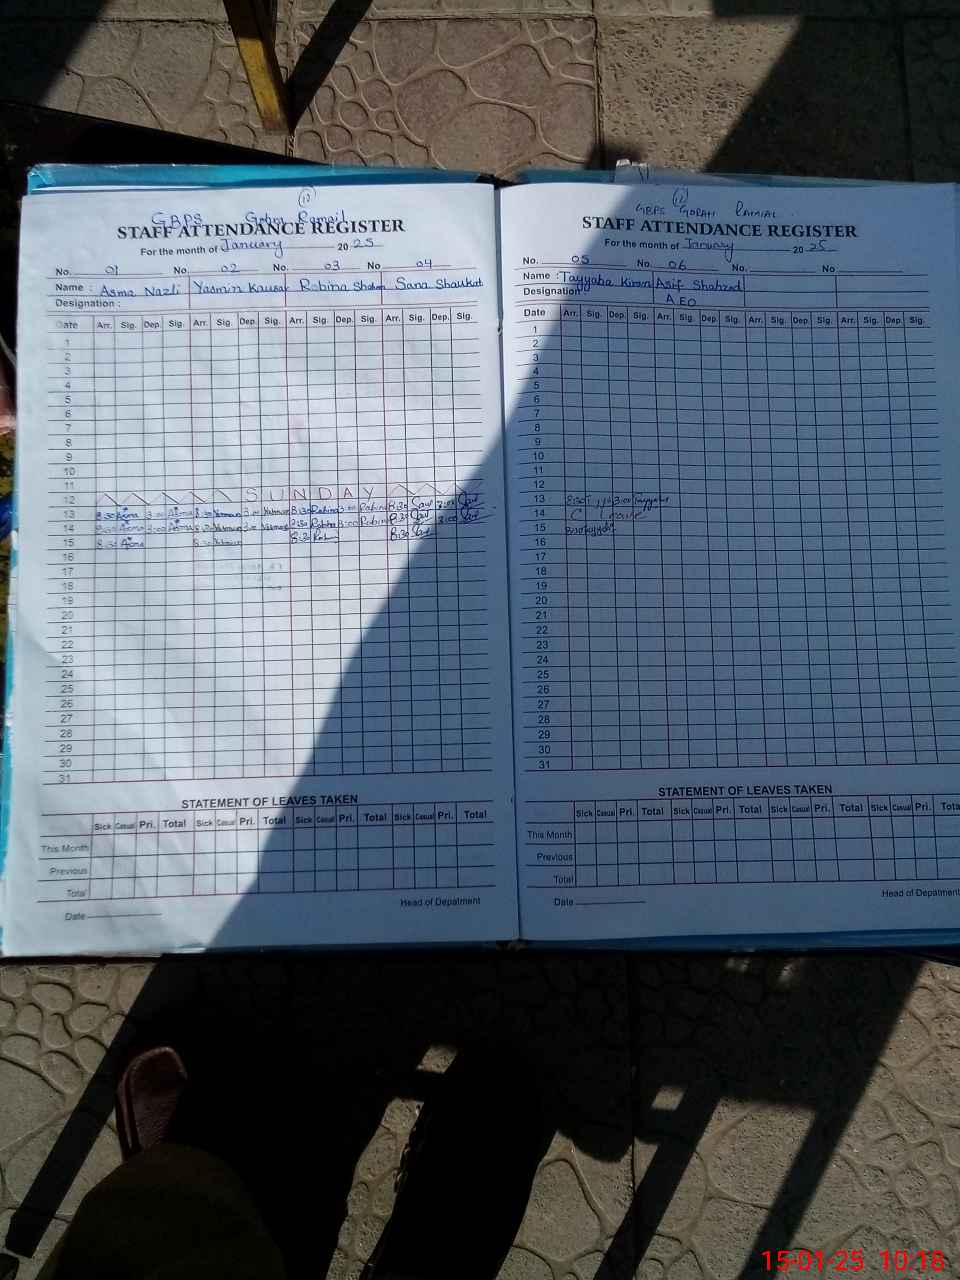 11
GBPS Gohra Ramail
STAFF ATTENDANCE REGISTER
For the month of January 2025
No. 01 No. 02 No. 03 No 04
Name : Asma Nazli Yasmin Kausar Robina Shaheen Sana Shaukat
Designation :
Date Arr. Sig. Dep. Sig. Arr. Sig. Dep. Sig. Arr. Sig. Dep. Sig. Arr. Sig. Dep. Sig.
1
2
3
4
5
6
7
8
9
10
11
12 SUNDAY
13 8:30 Asma 3:00 Asma 8:30 Yasmin 3:00 Yasmin 8:30 Robina 3:00 Robina 8:30 3:00
14 8:30 Asma 3:00 Asma 8:30 Yasmin 3:00 Yasmin 8:30 Robina 3:00 Robina 8:30 3:00
15 8:30 Asma 8:30 Yasmin 8:30 8:30
16
17
18
19
20
21
22
23
24
25
26
27
28
29
30
31
STATEMENT OF LEAVES TAKEN
Sick Casual Pri. Total Sick Casual Pri. Total Sick Casual Pri. Total Sick Casual Pri. Total
This Month
Previous
Total
Date
Head of Depatment
GBPS GORAH RAMIAL
STAFF ATTENDANCE REGISTER
For the month of January 2025
No. 05 No. 06 No. No.
Name : Tayyaba Kiran Asif Shahzad
Designation : AEO
Date Arr. Sig. Dep. Sig. Arr. Sig. Dep. Sig. Arr. Sig. Dep. Sig. Arr. Sig. Dep. Sig.
1
2
3
4
5
6
7
8
9
10
11
12
13 8:30 3:00 Tayyaba
14 C Leave
15 8:30 Tayyaba
16
17
18
19
20
21
22
23
24
25
26
27
28
29
30
31
STATEMENT OF LEAVES TAKEN
Sick Casual Pri. Total Sick Casual Pri. Total Sick Casual Pri. Total Sick Casual Pri. Total
This Month
Previous
Total
Date
Head of Depatment
15-01-25 10:18